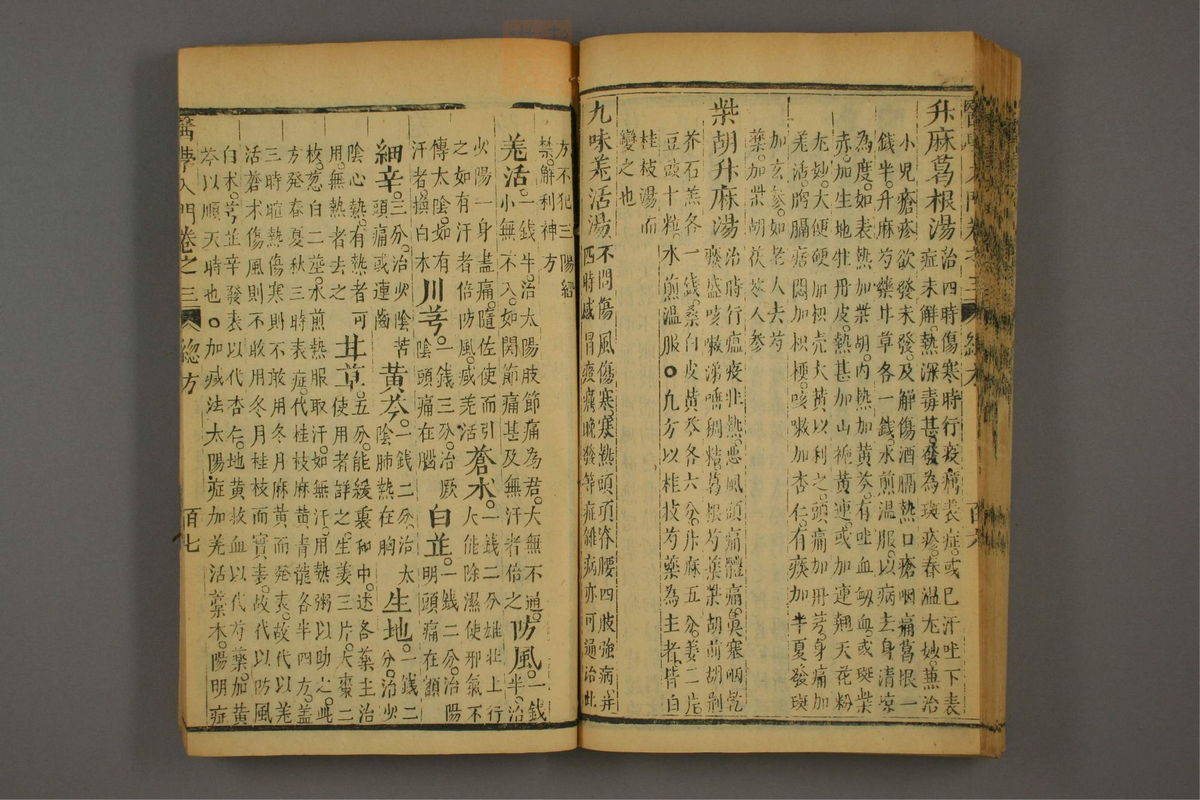 升麻葛根湯治四時傷寒時行疫癘表症或已汗吐下表
症未解熱深毒甚發為斑疹春溫尤妙兼治
小児瘡疹欲發未發及解傷酒膈熱口瘡咽痛葛根一
錢半升麻芍藥甘草各一錢水煎温服以病去身清凉
為度如表熱加柴胡内熱加黄芩有吐血衂血或斑紫
赤加生地牡丹皮熱甚加山梔黄連或加連翹天花粉
尤妙大便硬加枳壳大黄以利之頭痛加川芎身痛加
羌活胷膈痞悶加枳梗咳嗽加杏仁有痰加半夏發斑
加玄参如老人去芍
藥加柴胡茯苓人参
柴胡升麻湯治時行瘟疫壯熱惡風頭痛體痛鼻塞咽乾
痰盛咳嗽涕嚏稠粘葛根芍藥柴胡前胡荆
芥石羔各一錢桑白皮黄芩各六分升麻五分姜二片
豆豉十粒水煎温服○九方以桂枝芍藥為主者皆自
桂枝湯而
變之也
九味羌活湯不問傷風傷寒寒熱頭項脊腰四肢強病并
四時感冒痰癘晚發等症雜病亦可通治此
方不犯三陽經
禁解利神方
羌活一錢半治太陽肢節痛為君大無不通
小無不入如関節痛甚及無汗者倍之防風一錢半治
火陽一身盡痛隨佐使而引蒼术一錢二分雄壮上行
之如有汗者倍防風减羌活大能除濕使邪氣不
傳太陰如有川芎一錢三分治厥白芷一錢二分治陽
汗者換白术陰頭痛在腦明頭痛在額
細辛三分治少陰苦黄芩一錢二分治太生地一錢二
頭痛或連齒陰肺熱在胸分治少
陰心熱有熱者可甘草五分能緩裏和中述各藥主治
用無熱者去之使用者詳之生姜三片大棗二
枚葱白二莖水煎熱服取汗如無汗用熱粥以助之此
方発春夏秋三時表症代桂枝麻黄青龍各半四方盖
三時暄熱傷寒則不敢用冬月麻黄而発表故代以羌
活蒼术傷風則不敢用冬月桂枝而實表故代以防風
白术芎芷辛發表以代杏仁地黄救血以代芍藥加黄
芩以順天時也○加减法太陽症加羌活藁木陽明症
醫學入門卷之三 總方 百七